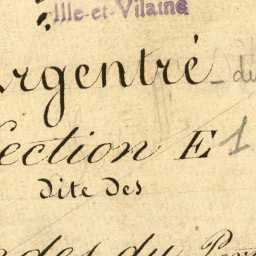 Ille-et-Vilaine
rgentré du
Section E 1
dite des
des du